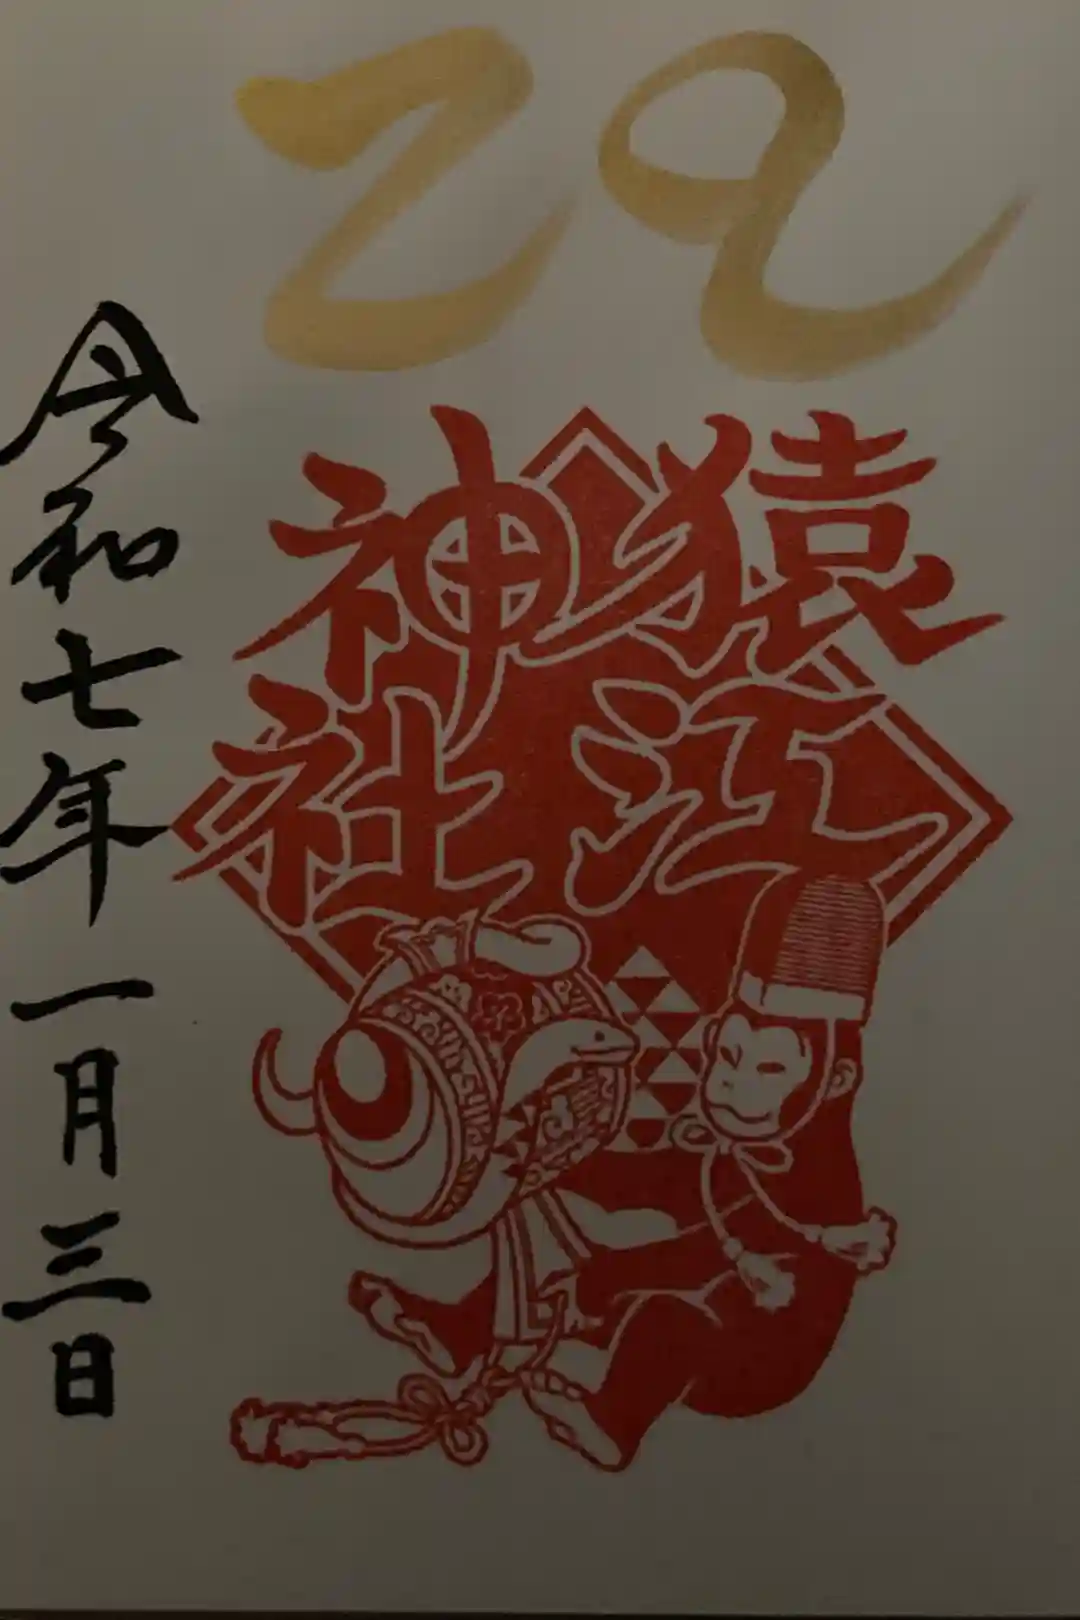 猿江
神社
令和七年一月三日